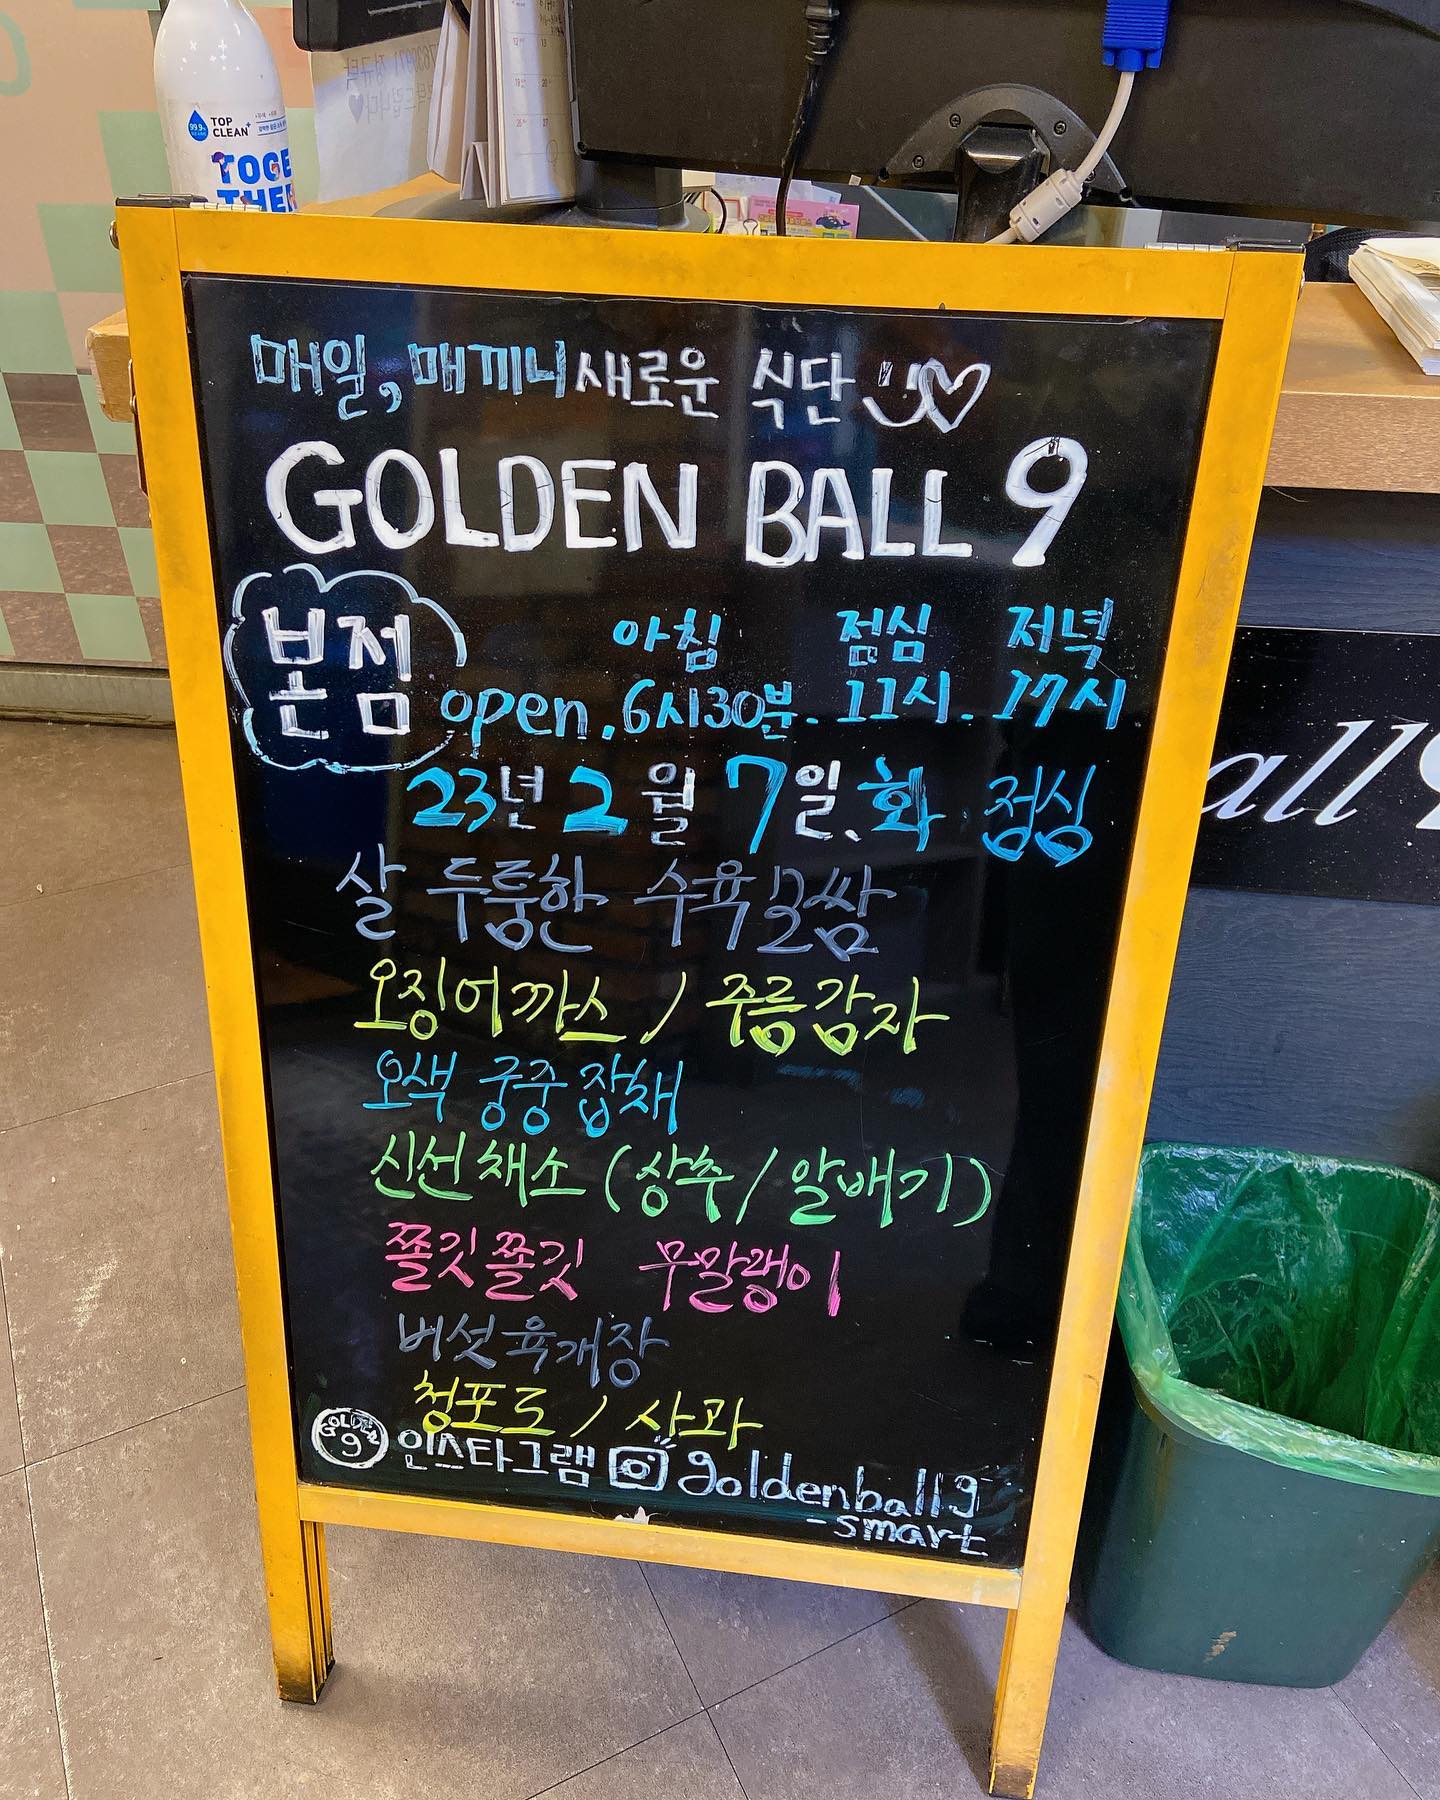 TOP
CLEAN+
99.9%
TOGE
THER
매일, 매끼니 새로운 식단
GOLDEN BALL 9
본점
아침 점심 저녁
open. 6시30분. 11시. 17시
23년 2월 7일. 화. 점심
살 두툼한 수육보쌈
오징어까스 / 주름감자
오색 궁중잡채
신선채소 (상추 / 알배기)
쫄깃쫄깃 무말랭이
버섯육개장
청포도 / 사과
GOLDEN
9
인스타그램 goldenball9
-smart
all 9